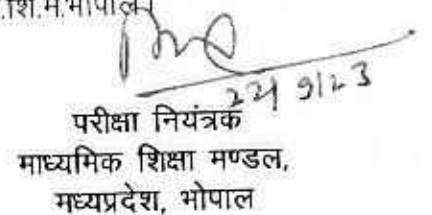 .शि.म.भोपाल।
22/9/23
परीक्षा नियंत्रक
माध्यमिक शिक्षा मण्डल,
मध्यप्रदेश, भोपाल